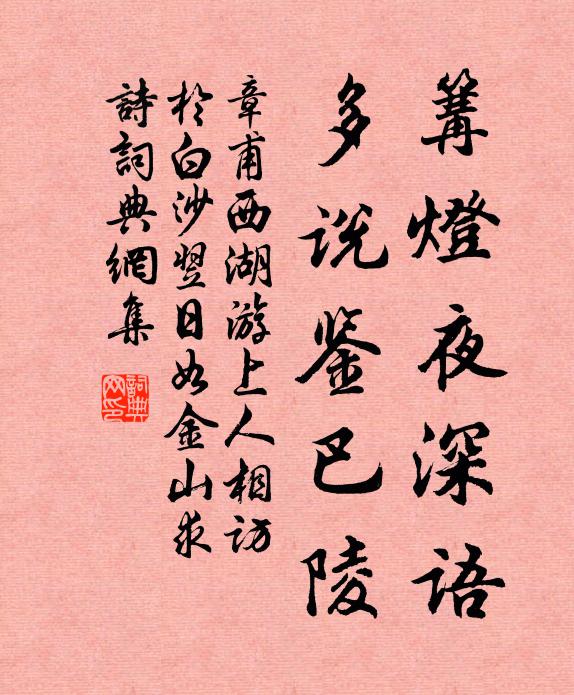 篝燈夜深語
多说鉴巴陵
章甫西湖游上人相访
於白沙翌日如金山求
詩詞典網集
詞典网印